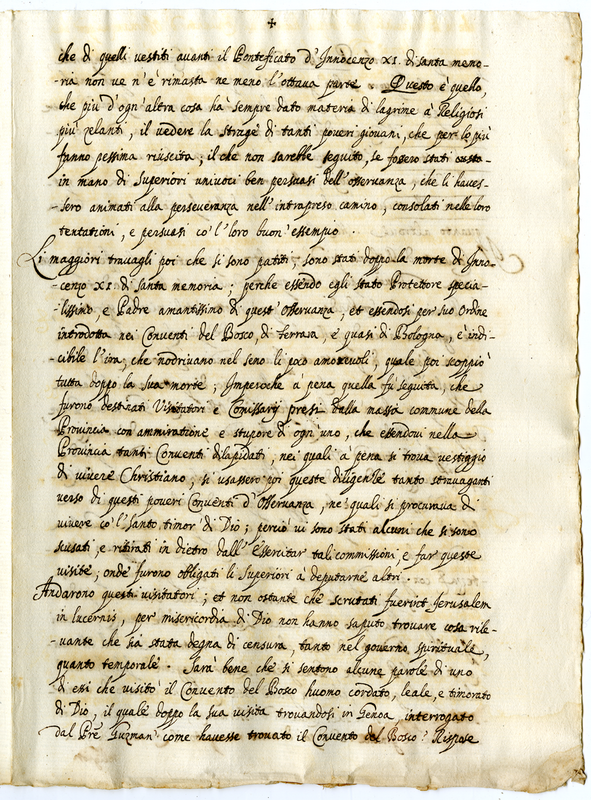 ✝
che di quelli vestiti avanti il Pontificato d'Innocenzo XI. di santa memo-
-ria non ve n'è rimasta ne meno l'ottava parte. Questo è quello,
che più d'ogn'altra cosa hà sempre dato materia di lagrime à Religiosi
più zelanti, il vedere la strage di tanti poveri giovani, che per lo più
fanno pessima riuscita; il che non sarebbe seguito, se fossero stati
in mano di Superiori univoci ben persuasi dell'osservanza, che li haves-
-sero animati alla perseveranza nell'intrapreso camino, consolati nelle loro
tentationi, e persuasi co'l loro buon'essempio.
Li maggiori travagli poi che si sono patiti, sono stati doppo la morte di Inno-
-cenzo XI di santa memoria; perche essendo egli stato Protettore specia-
-lissimo, e Padre amantissimo di quest'Osservanza, et essendosi per suo Ordine
introdotta nei Conventi del Bosco, di Ferrara, e quasi di Bologna, è indi-
-cibile l'ira, che nodrivano nel seno li poco amorevoli, quale poi scoppiò
tutta doppo la sua morte; Imperoche à pena quella fu seguita, che
furono destinati Visitatori e Comissarij presi dalla massa commune della
Provincia con ammiratione e stupore di ogn'uno, che essendovi nella
Provincia tanti Conventi dilapidati, nei quali à pena si trova vestiggio
di vivere Christiano, si usassero poi queste diligenze tanto stravaganti
verso di questi poveri Conventi d'Osservanza, ne quali si procurava di
vivere co'l santo timor di Dio; perciò vi sono stati alcuni che si sono
scusati, e ritirati in dietro dall'essercitar tal commissioni, e far queste
visite; onde furono obligati li Superiori à deputarne altri.
Andarono questi visitatori; et non ostante che scrutati fuerint Jerusalem
in lucernis, per misericordia di Dio non hanno saputo trovare cosa rile-
-vante che sia stata degna di censura, tanto nel governo spirituale,
quanto temporale. Sarà bene che si sentono alcune parole di uno
di essi che visitò il Convento del Bosco huomo cordato, leale, e timorato
di Dio, il quale doppo la sua visita trovandosi in Genoa, interrogato
dal Pre Guzman come havesse trovato il Convento del Bosco? Rispose